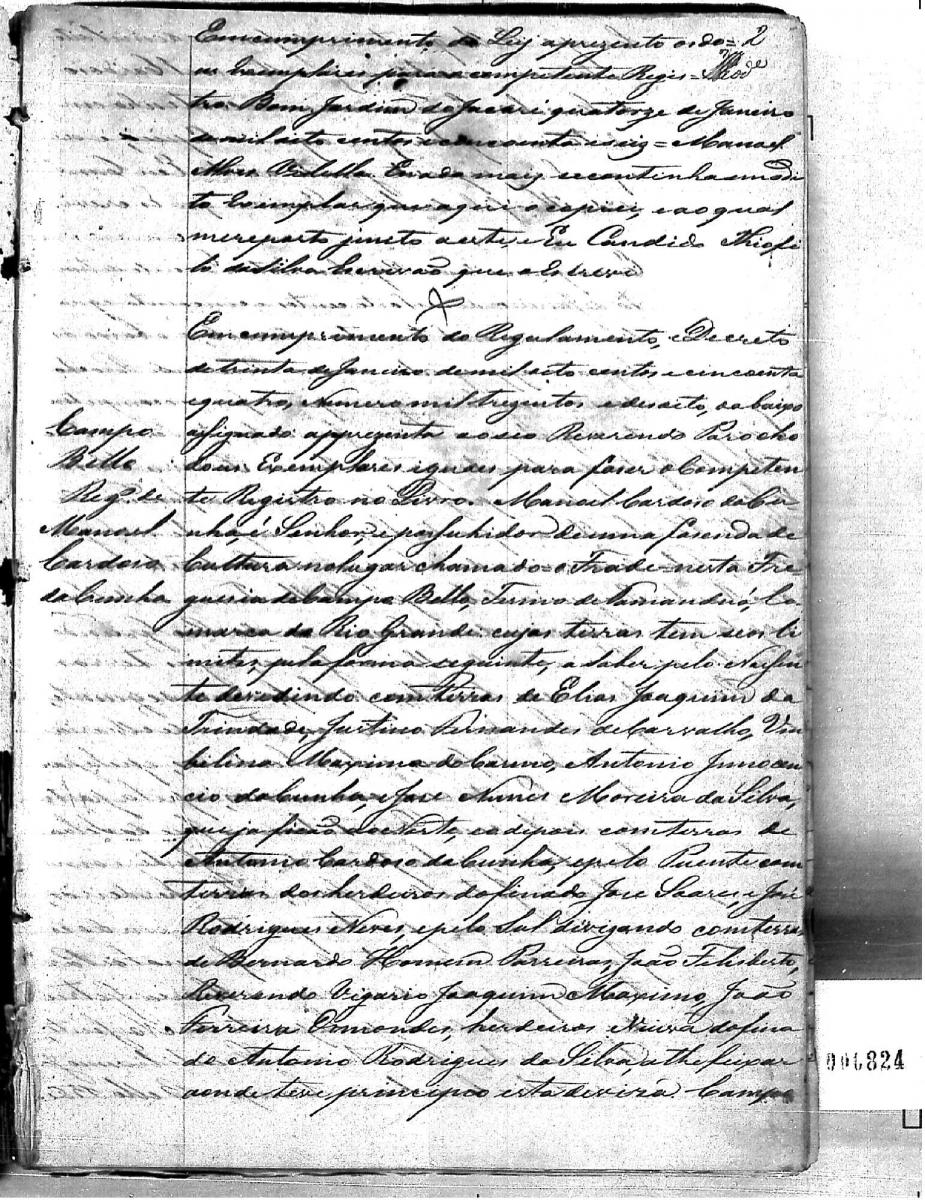 Em cumprimento da Ley aprezento os do= 2
us Exemplares para o competente Regis=
tro. Bom Jardim do Jacaré quatorze de Janeiro
de mil oito centos e cincoenta e seis = Manoel
Alves Vilella. E nada mais se continha em o di
to Exemplar que aqui copiei, e ao qual
me reporto junto a este e Eu Candido Thiofi
lo da Silva Escrivaõ que o Escrevi
Em cumprimento do Regulamento, e Decreto
de trinta de Janeiro de mil oito centos e cincoenta
e quatro, Numero mil trezentos e desoito, o abaixo
assignado apprezenta ao seo Reverendo Parocho
dous Exemplares iguaes para faser o Competen
te Registro no Livro. Manoel Cardoso da Cu
nha é Senhor, e possuhidor de uma fasenda de
Cultura no lugar chamado = o Frade = nesta Fre
guesia de Campo Bello, Termo de Tamanduá, Co
marca do Rio Grande cujas terras tem seos li
mites pela forma seguinte, a saber pelo Nassen
te devedindo com terras de Elias Joaquim da
Trindade, Justino Fernandes de Carvalho, Um
bilina Maxima do Carmo, Antonio Innocen
cio da Cunha, e Jose Nunes Moreira da Silva,
que ja ficaõ ao Norte, e a depois com terras de
Antonio Cardoso da Cunha, e pelo Puente com
terras dos herdeiros do finado Jose Soares, e José
Rodrigues Neves, e pelo Sul divizando com terras
de Bernardo Homem Parreiras, João Felisberto,
Reverendo Vigario Joaquim Maximo, João
Ferreira Ormondes, herdeiros e Viuva do fina
do Antonio Rodrigues da Silva, athe feixar
aonde teve principio esta deviza. Campo
Campo
Bello
Regº. de
Manoel
Cardoso
da Cunha
000824